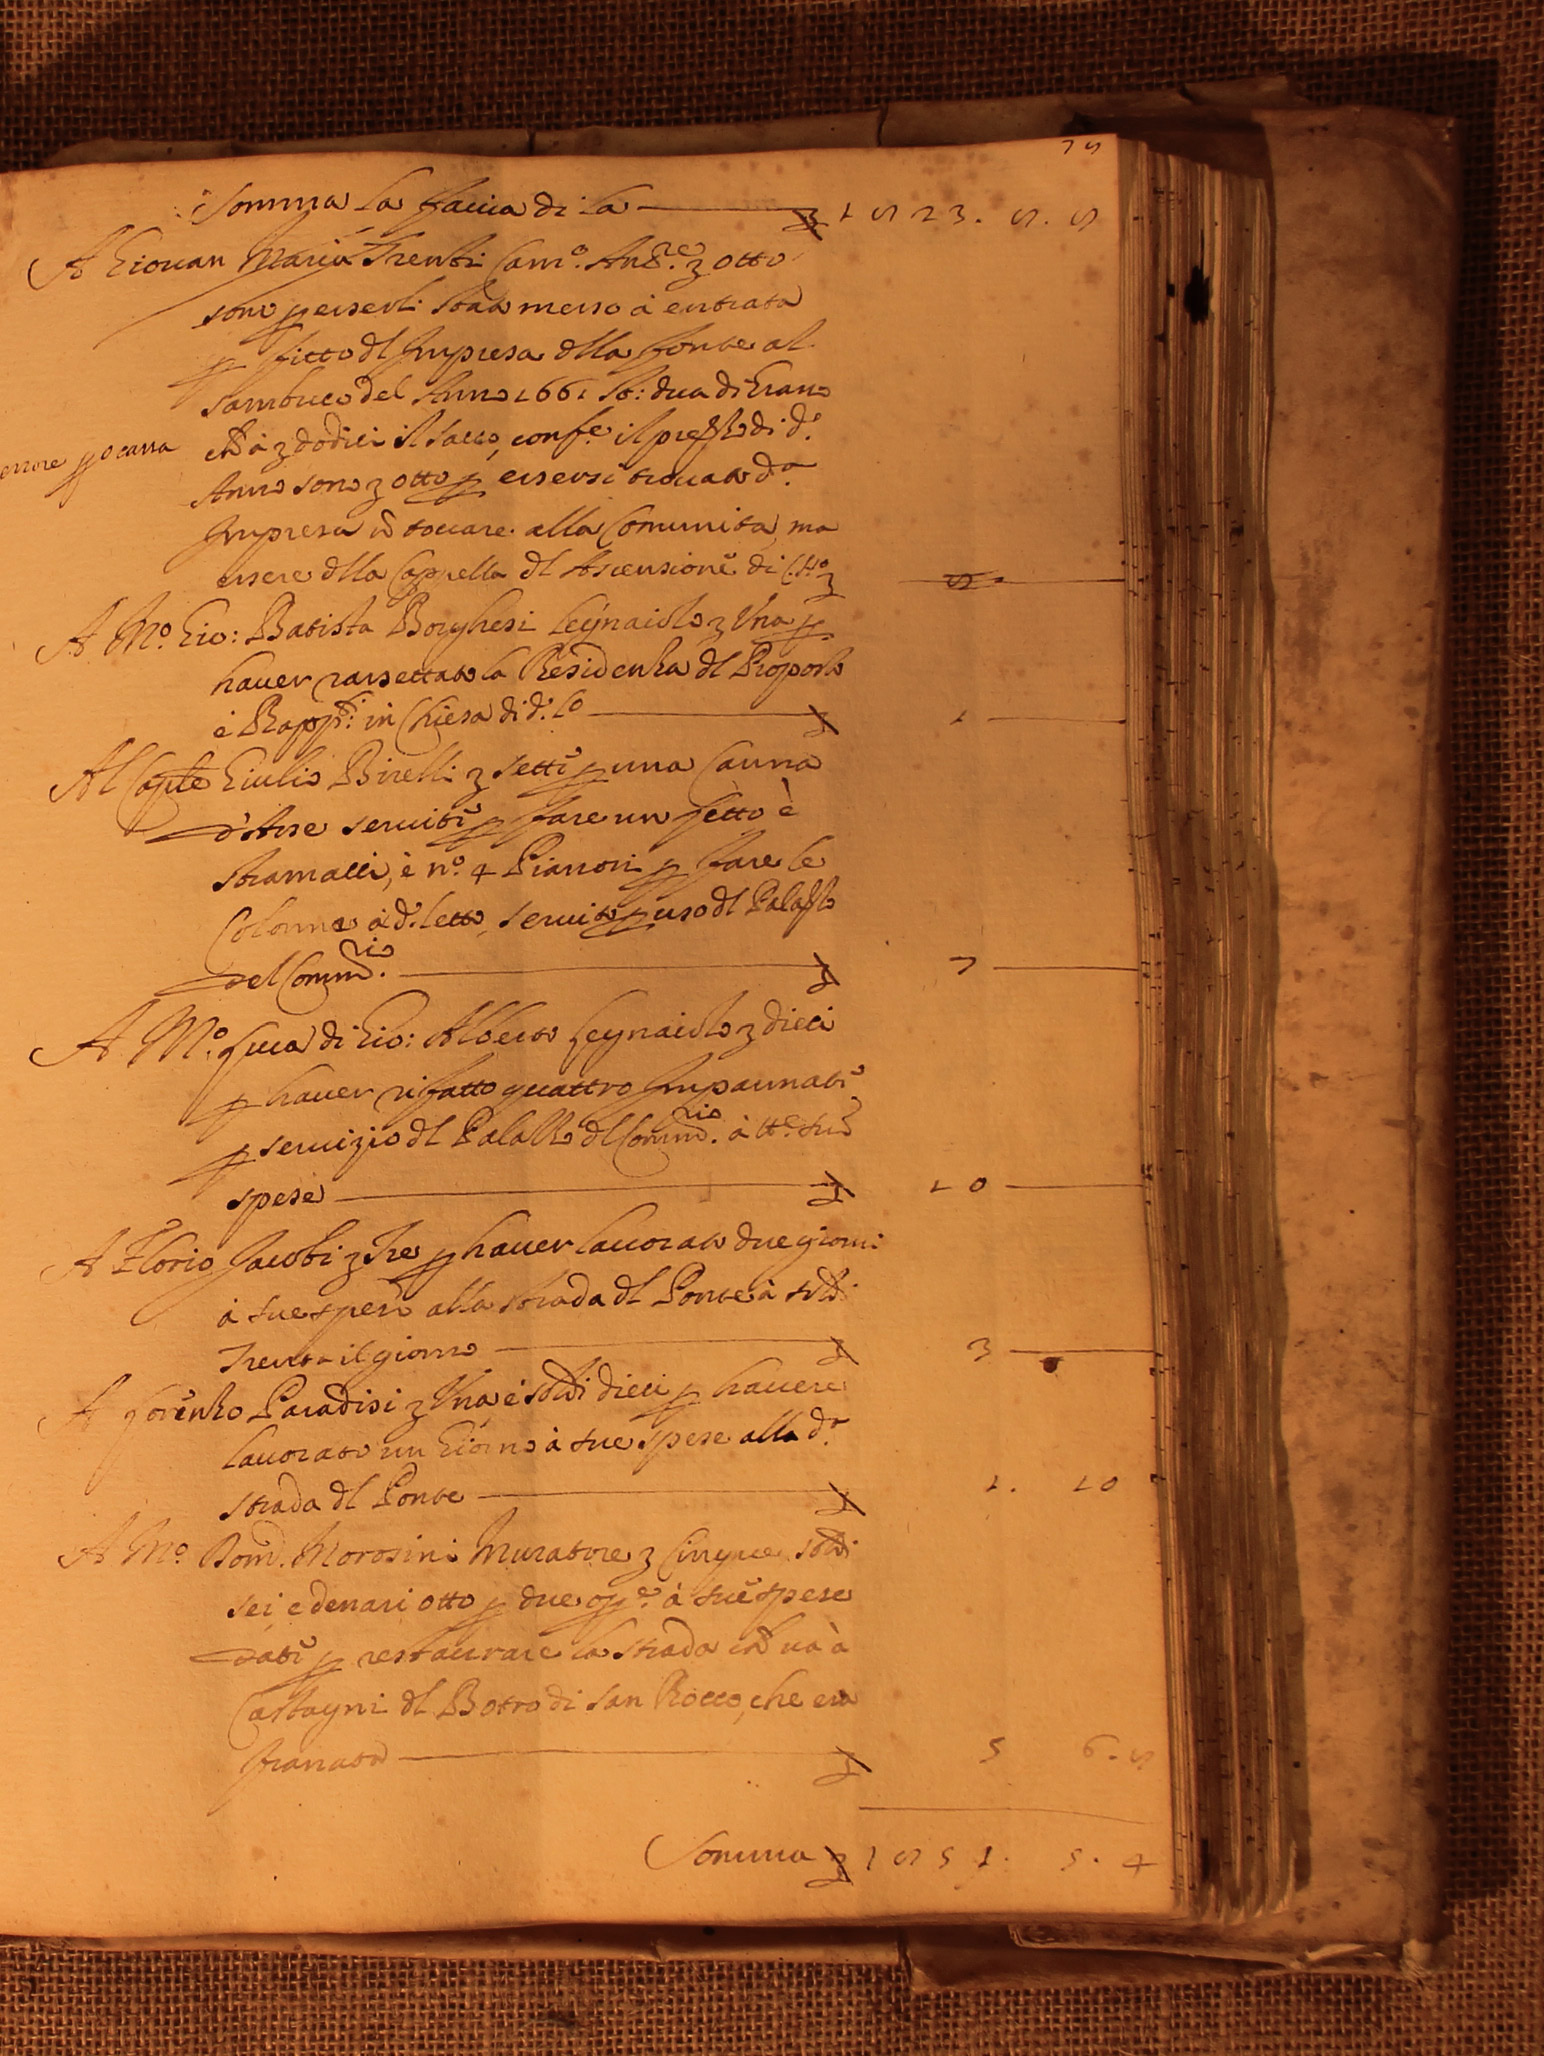 75
Somma la faccia di la £ 1823. 8. 8
A Giovan Maria Trenti Cam.o Ant.re £ otto
sono p esserli stato messo à entrata
p fitto dl Impresa dlla fonte al
sambuco del Anno 1661 St: dua di Grano
à £ dodici il sacco, conf.e il prezzo di d.o
errore p o carra
Anno sono £ otto p essersi trovato d.a
Impresa nō toccare alla Comunita, ma
essere dlla Cappella dl Ascensione di 8
A M.o Gio: Batista Borghesi legnaiolo £ Una p
haver rassettato la Residenza dl Proposto
è Rapp.ti in Chiesa di d.o l.o £ 1
Al Cap.le Giulio Birelli £ setti p una Canna
d'Asse serviti p fare un letto è
stramazzi, è n.o 4 Pianoni p fare le
Colonne à d.o letto, servito p uso dl Palazzo
del Comm.rio £ 7
A M.o Luca di Gio: Alberto legnaiolo £ dieci
p haver rifatto quattro Impannati
p servizio dl Palazzo dl Comm.rio à tt.e sue
spese £ 10
A Florio Jacobi £ Tre p haver lavorato due giorni
à sue spese alla strada dl Ponte à soldi
Trenta il giorno £ 3
A Lorenzo Paradisi £ Una è soldi dieci p havere
lavorato un Giorno à sue spese alla d.a
strada dl Ponte £ 1. 10
A M.o Dom.o Morosini Muratore £ Cinque soldi
sei e denari otto p due op.e à sue spese
dati p restaurare la strada chē và à
Castagni dl Botro di San Rocco, che era
franata £ 5 6. 8
Somma £ 1851. 5. 4